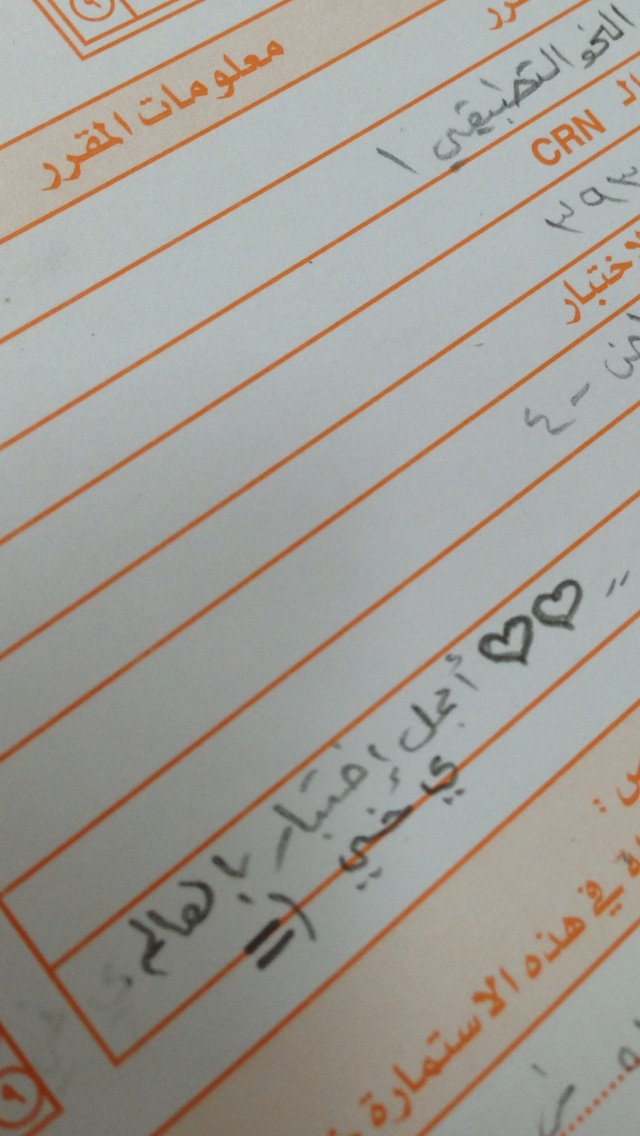 معلومات المقرر
النحو التطبيقي ١
الـ CRN
٣٩٣
الاختبار
- ٤
أجمل اختبار بالعالم
ي خيي (=
في هذه الاستمارة